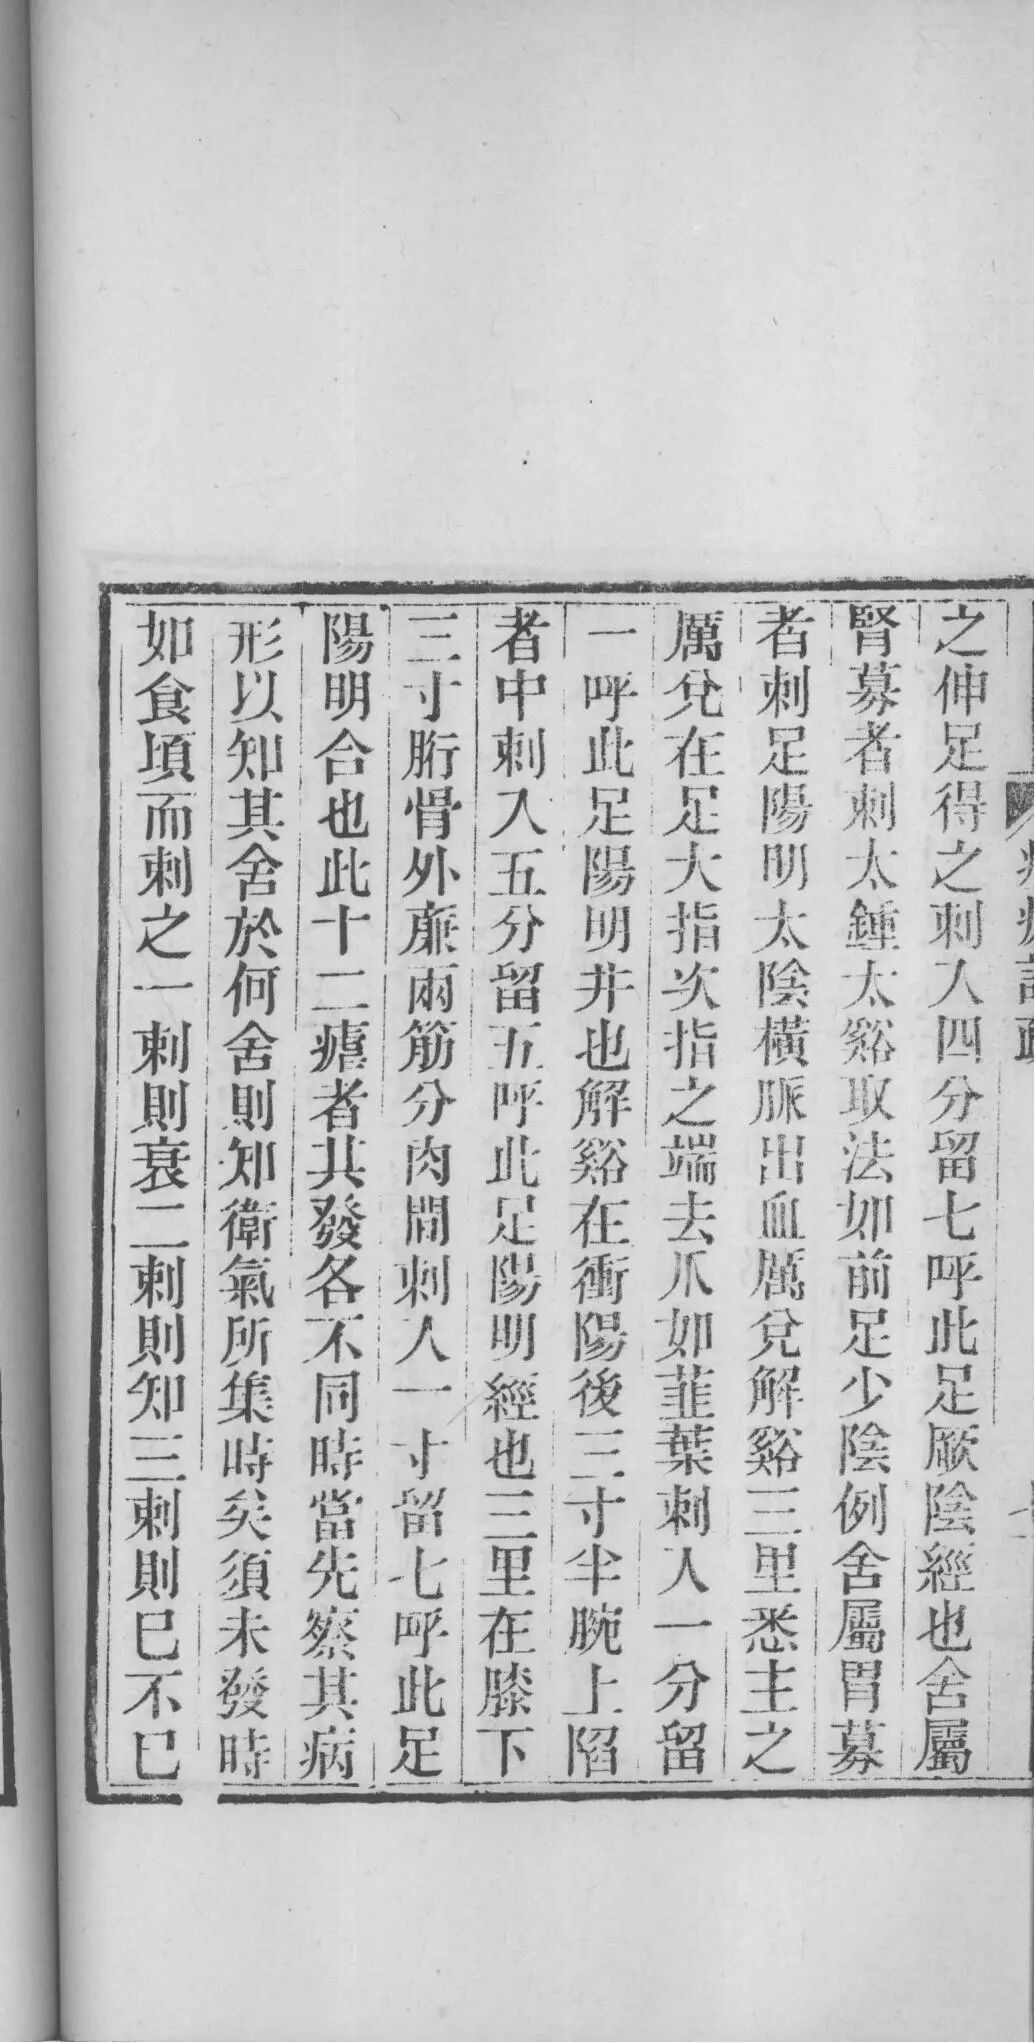 之伸足得之刺入四分留七呼此足厥陰經也舍屬
腎募者刺太鍾太谿取法如前足少陰例舍屬胃募
者刺足陽明太陰橫脈出血厲兌解谿三里悉主之
厲兌在足大指次指之端去爪如韮葉刺入一分留
一呼此足陽明井也解谿在衝陽後三寸半腕上陷
者中刺入五分留五呼此足陽明經也三里在膝下
三寸胻骨外亷兩筋分肉間刺入一寸留七呼此足
陽明合也此十二瘧者其發各不同時當先察其病
形以知其舍於何舍則知衛氣所集時矣須未發時
如食頃而刺之一刺則衰二刺則知三刺則已不已